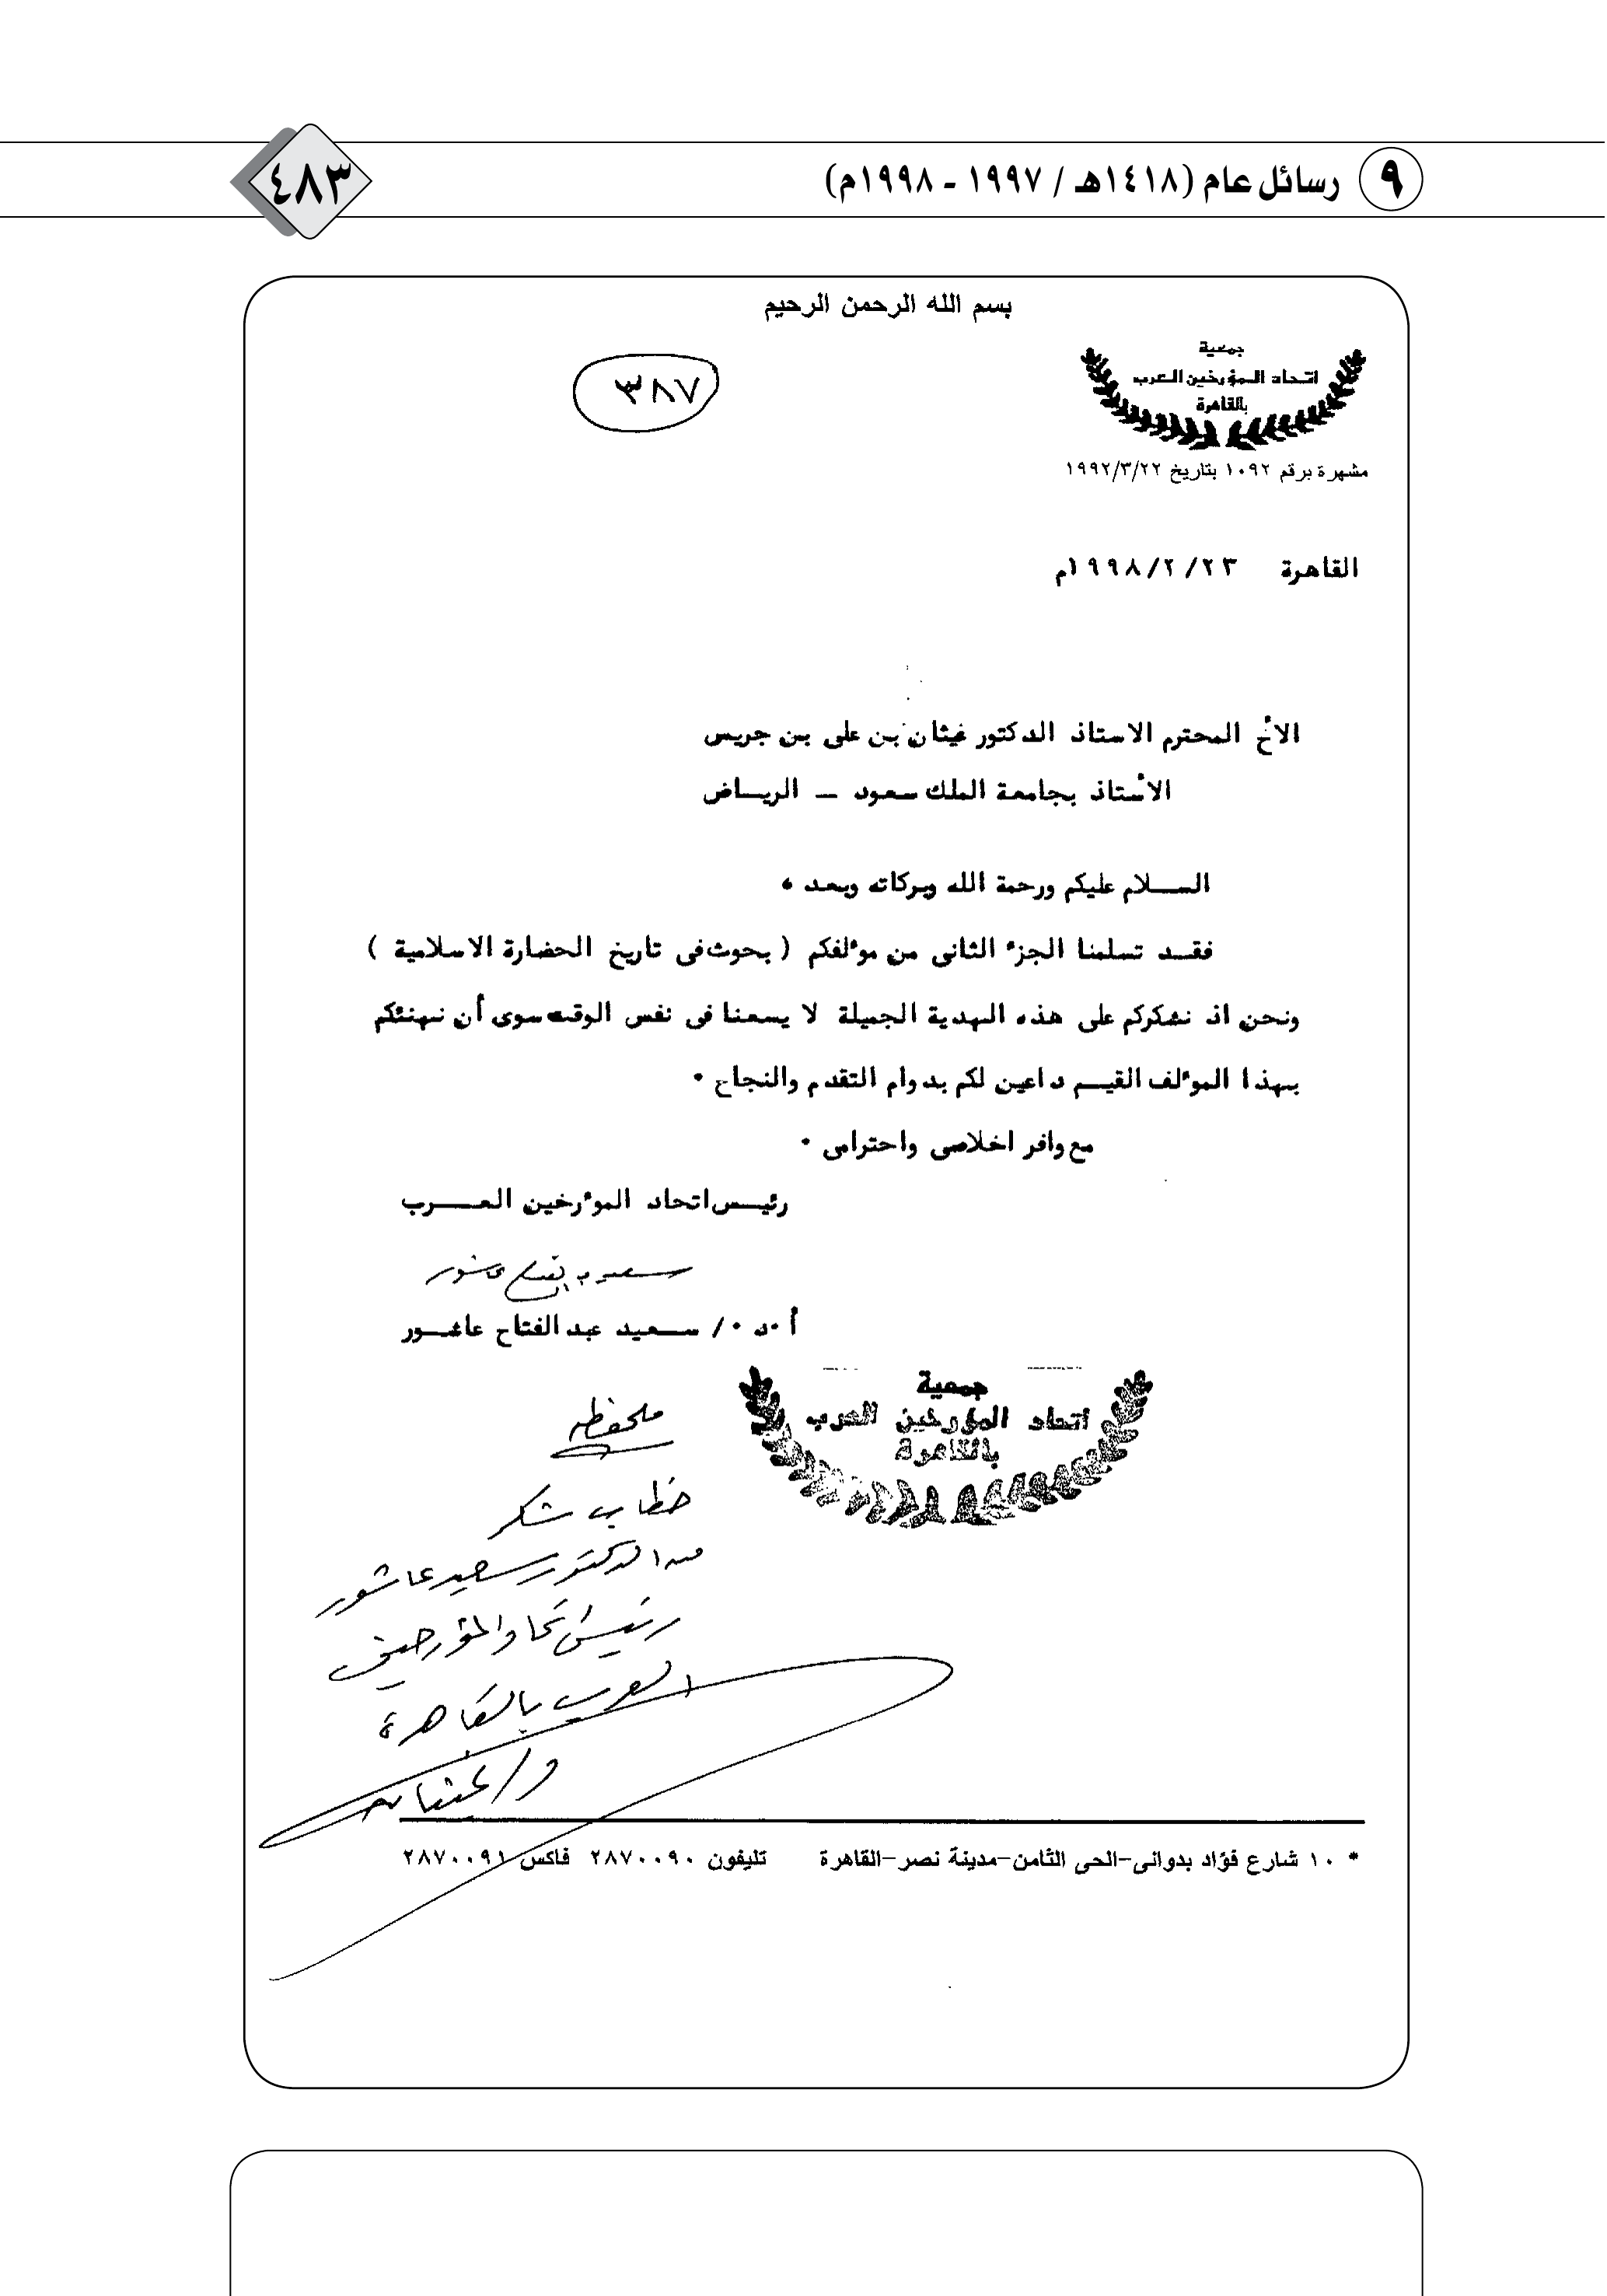 ٩ رسائل عام (١٤١٨هـ / ١٩٩٧ - ١٩٩٨م)
٤٨٣
بسم الله الرحمن الرحيم
جمعية
اتحاد المؤرخين العرب
بالقاهرة
٣٨٧
مشهرة برقم ١٠٩٢ بتاريخ ١٩٩٢/٣/٢٢
القاهرة ١٩٩٨/٢/٢٣م
الأخ المحترم الاستاذ الدكتور غيثان بن على بن جريس
الأستاذ بجامعة الملك سعود – الريـاض
الســلام عليكم ورحمة الله وبركاته وبعد ،
فقــد تسلمنا الجزء الثانى من مؤلفكم ( بحوث فى تاريخ الحضارة الاسلامية )
ونحن اذ نشكركم على هذه الهدية الجميلة لا يسعنا فى نفس الوقت سوى أن نهنئكم
بهذا المؤلف القيـم داعين لكم بدوام التقدم والنجاح ٠
مع وافر اخلاصى واحترامى ٠
رئيـس اتحاد المؤرخين العــرب
سعيد عبد الفتاح عاشور
أ ٠د ٠/ سـعيد عبد الفتاح عاشـور
جمعية
اتحاد المؤرخين العرب
بالقاهرة
ملحفظه
خطاب شكر
من الدكتور سعيد عاشور
رئيس اتحاد المؤرخين
العرب بالقاهرة
د/ غيثان
* ١٠ شارع فؤاد بدوانى-الحى الثامن-مدينة نصر-القاهرة تليفون ٢٨٧٠٠٩٠ فاكس ٢٨٧٠٠٩١